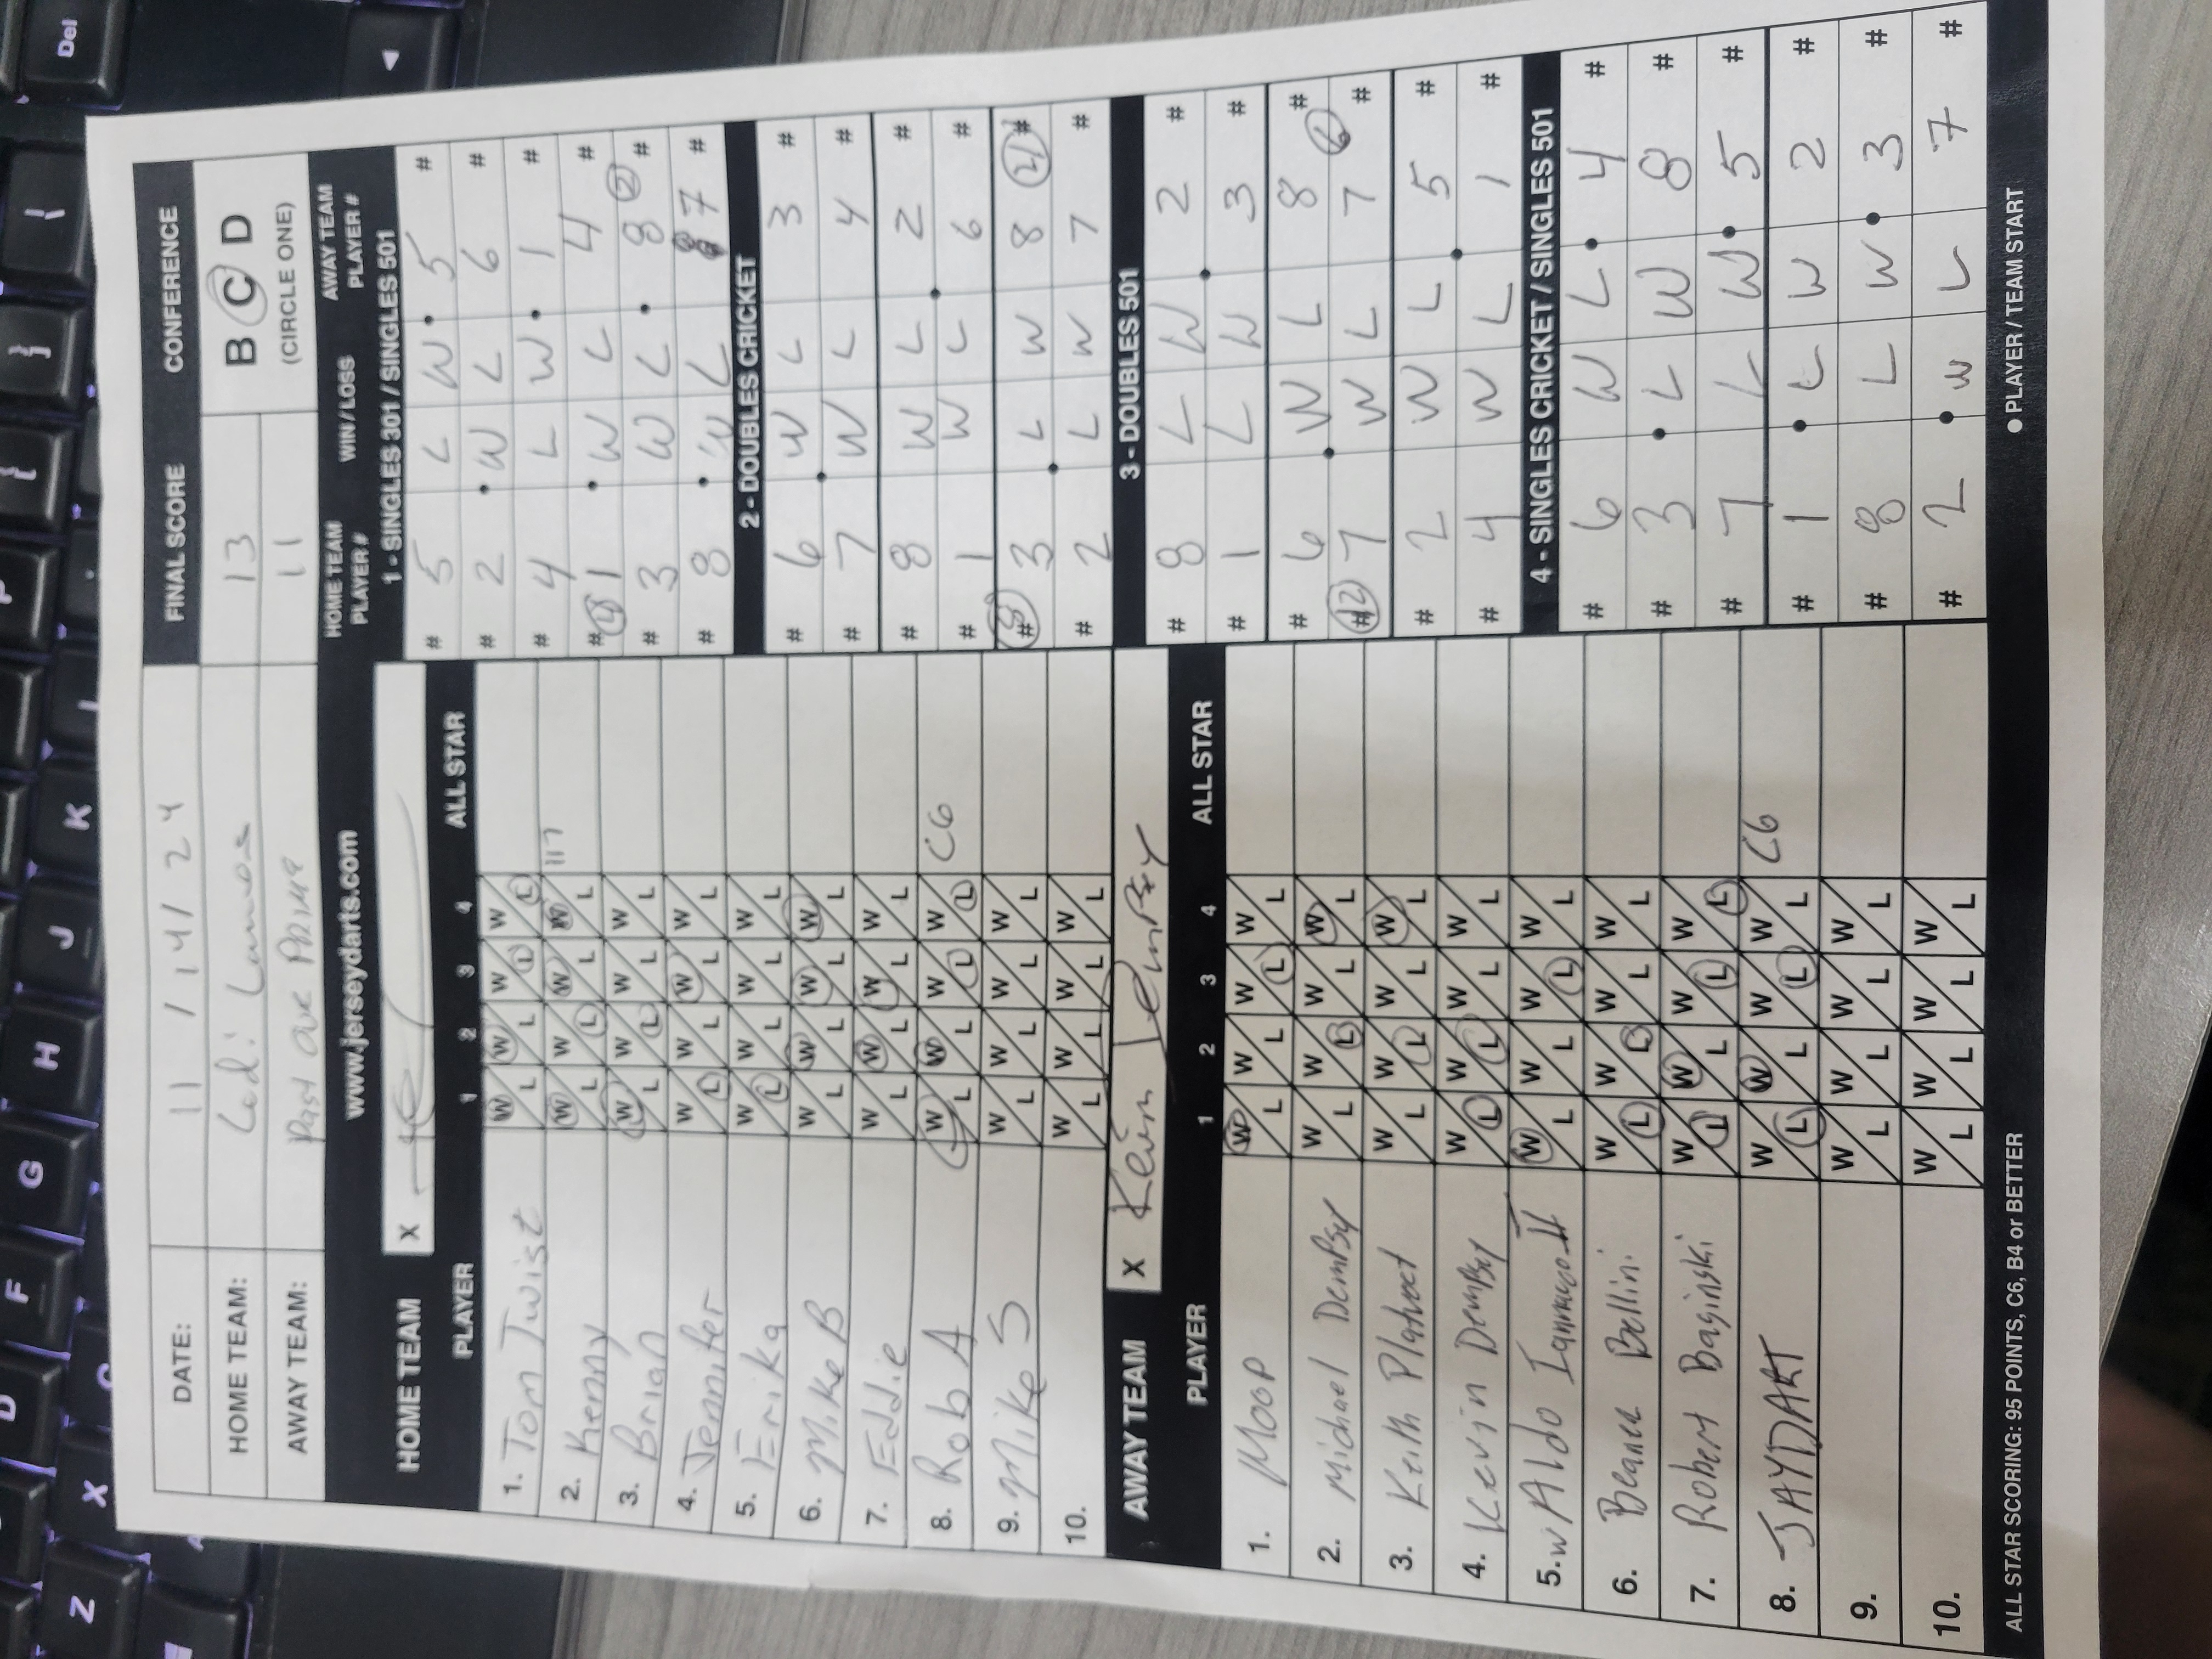 DATE: 11 / 14 / 24 FINAL SCORE CONFERENCE
HOME TEAM: 13 B C D
AWAY TEAM: Past our Prime 11 (CIRCLE ONE)
www.jerseydarts.com
HOME TEAM X
PLAYER 1 2 3 4 ALL STAR
1. Tom Twist W L W L W L W L
2. Kenny W L W L W L W L 117
3. Brian W L W L W L W L
4. Jennifer W L W L W L W L
5. Erika W L W L W L W L
6. Mike B W L W L W L W L
7. Eddie W L W L W L W L
8. Rob A W L W L W L W L C6
9. Mike S W L W L W L W L
10. W L W L W L W L
AWAY TEAM X Kevin Dempsey
PLAYER 1 2 3 4 ALL STAR
1. Moop W L W L W L W L
2. Michael Dempsy W L W L W L W L
3. Keith W L W L W L W L
4. Kevin Dempsy W L W L W L W L
5. W Aldo W L W L W L W L
6. Bellini W L W L W L W L
7. Robert Baginski W L W L W L W L
8. JAYDART W L W L W L W L C6
9. W L W L W L W L
10. W L W L W L W L
HOME TEAM PLAYER # WIN / LOSS AWAY TEAM PLAYER #
1 - SINGLES 301 / SINGLES 501
# 5 L W 5 #
# 2 W L 6 #
# 4 L W 1 #
# 1 W L 4 #
# 3 W L 8 2 #
# 8 W L 7 #
2 - DOUBLES CRICKET
# 6 W L 3 #
# 7 W L 4 #
# 8 W L 2 #
# 1 W L 6 #
# 3 L W 8 #
# 2 L W 7 #
3 - DOUBLES 501
# 8 L W 2 #
# 1 L W 3 #
# 6 W L 8 #
# 7 W L 7 6 #
# 2 W L 5 #
# 4 W L 1 #
4 - SINGLES CRICKET / SINGLES 501
# 6 W L 4 #
# 3 L W 8 #
# 7 L W 5 #
# 1 L W 2 #
# 8 L W 3 #
# 2 W L 7 #
ALL STAR SCORING: 95 POINTS, C6, B4 or BETTER ● PLAYER / TEAM START
Del
Z
X
D
F
G
H
J
K
L
P